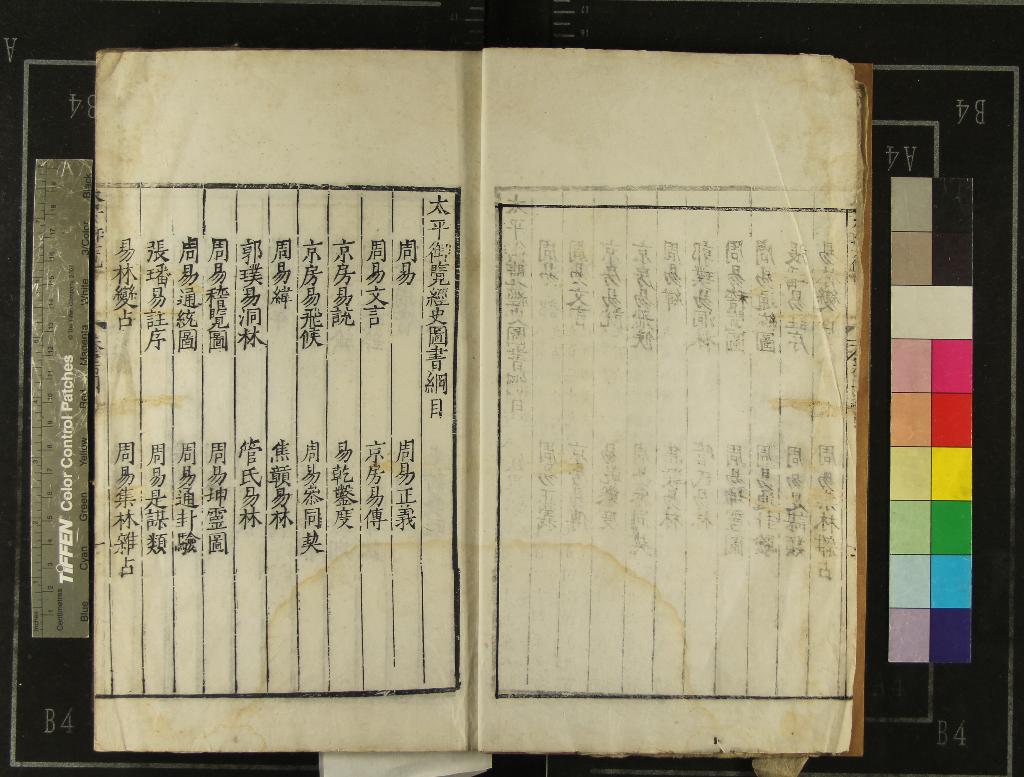 太平御覽經史圖書綱目
周易
周易正義
周易文言
京房易傳
京房易說
易乾鑿度
京房易飛候
周易叅同契
周易緯
焦贛易林
郭璞易洞林
管氏易林
周易稽覽圖
周易坤靈圖
周易通統圖
周易通卦驗
張璠易註序
周易是謀類
易林變占
周易集林雜占
TIFFEN Color Control Patches
Blue
Cyan
Green
Yellow
Magenta
White
3/Color
Black
Centimetres
Inches
B4
B4
B4
B4
A4
A